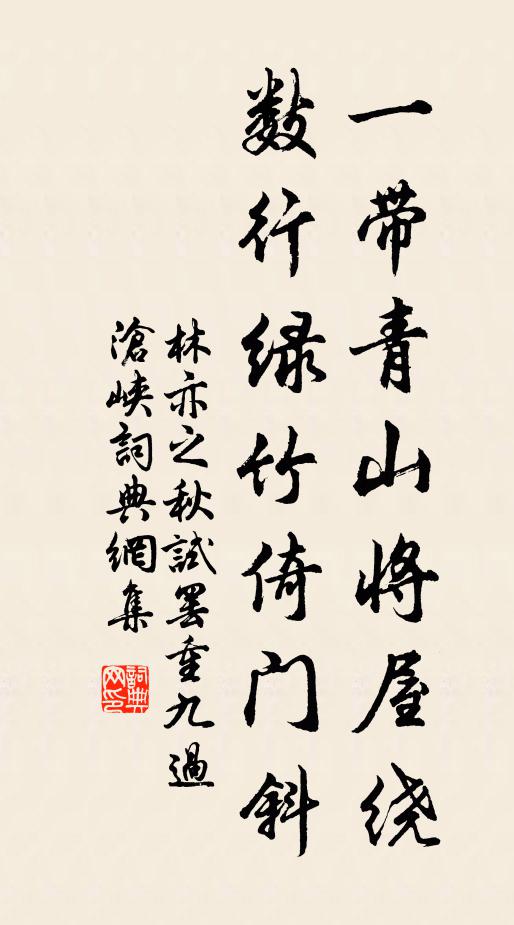 一带青山将屋绕
数行绿竹倚门斜
林亦之秋試罢重九過
滄峡詞典網集
詞典
网印